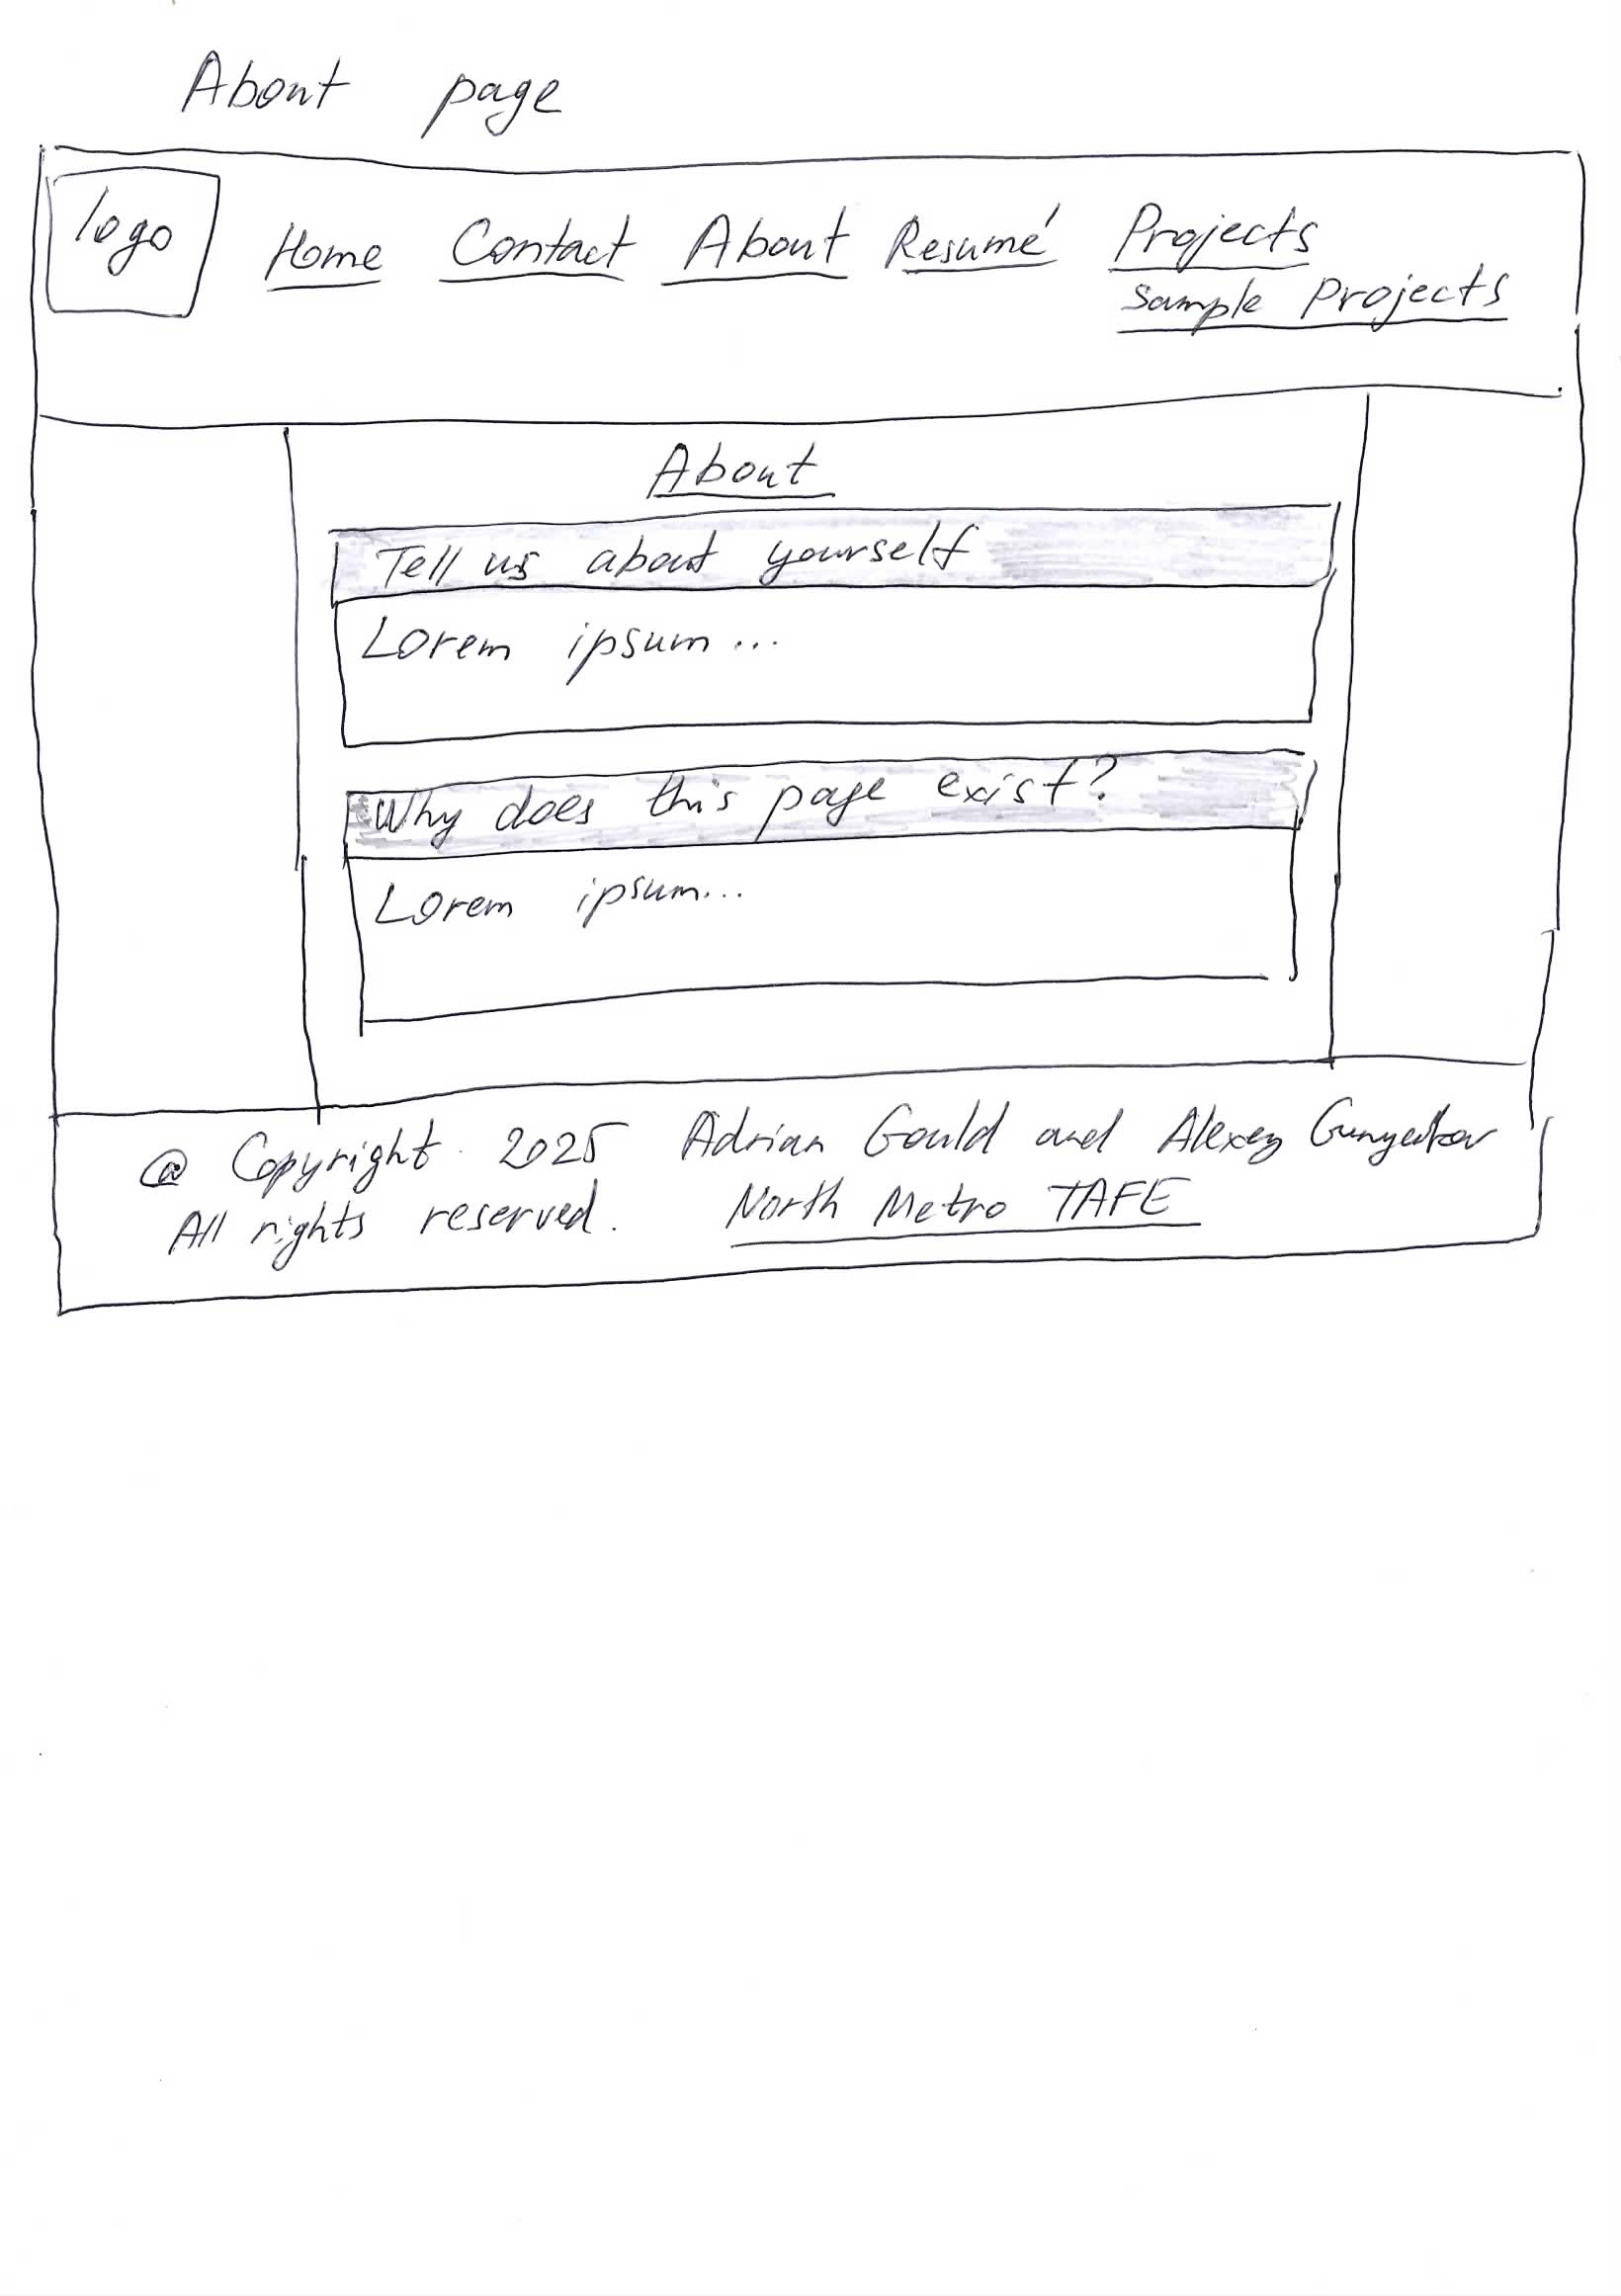 About page
logo
Home Contact About Resumé Projects
Sample Projects
About
Tell us about yourself
Lorem ipsum...
Why does this page exist?
Lorem ipsum...
@ Copyright 2025 Adrian Gould and Alexey
All rights reserved. North Metro TAFE